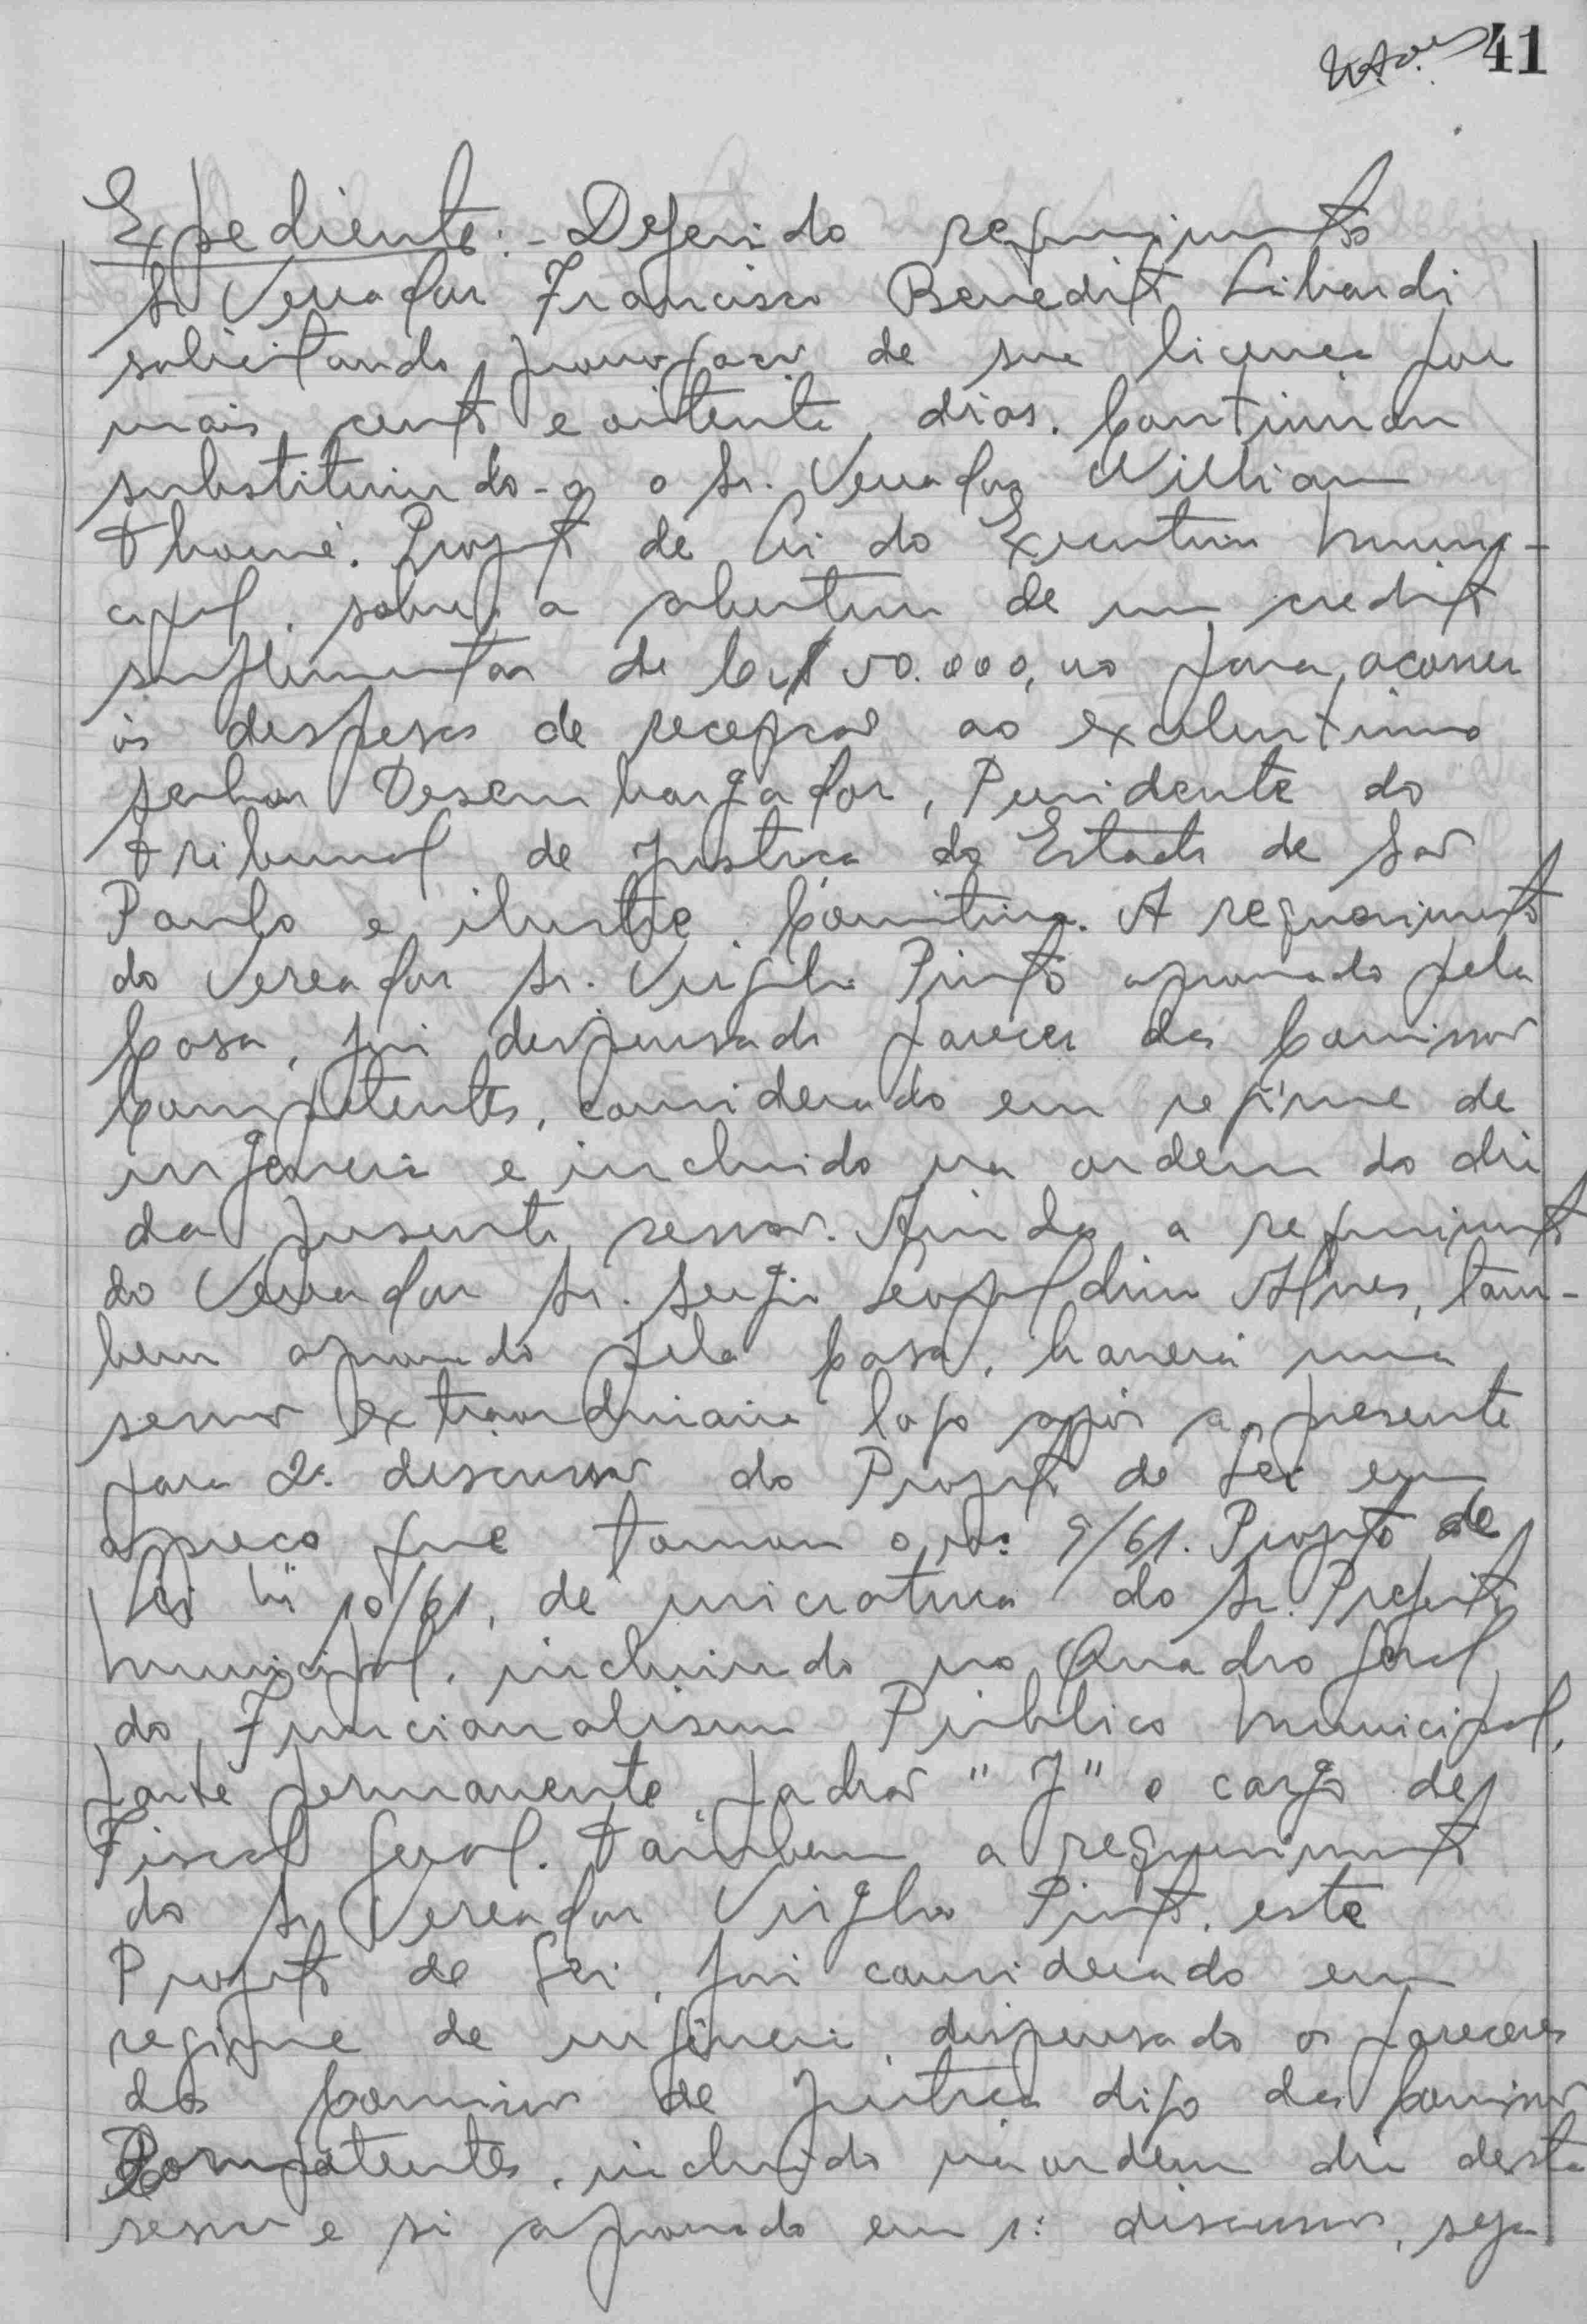 41
Expediente: - Deferido requerimento
Sr Vereador Francisco Benedito Libardi
solicitando prorrogação de sua licença por
mais cento e oitenta dias. Continuar
substituindo-o o Sr. Vereador Willian
Thomé. Projeto de Lei do Executivo Muni-
cipal, sobre a abertura de um credito
suplementar de Cr$ 50.000,00 para ocorrer
ás despesas de recepção ao excelentissimo
senhor Desembargador, Presidente do
Tribunal de Justiça do Estado de São
Paulo e ilustre Comitiva. A requerimento
do Vereador Sr. Virgilio Pinto aprovado pela
Casa, foi dispensado parecer das Comissões
Competentes, considerado em regime de
urgencia e incluido na ordem do dia
da presente sessão. Ainda a requerimento
do Vereador Sr. Sergio Leopoldino Alves, tam-
bem aprovado pela Casa, haverá uma
sessão extraordinaria logo após a presente
para 2ª discussão do Projeto de Lei em
apreço que tomou o nº 9/61. Projeto de
Lei nº 10/61, de iniciativa do Sr. Prefeito
Municipal, incluindo no Quadro Geral
do Funcionalismo Público Municipal,
parte permanente, padrão "J" o cargo de
Fiscal Geral. Também a requerimento
do Sr Vereador Virgilio Pinto, este
Projeto de Lei, foi considerado em
regime de urgencia, dispensado os pareceres
das Comissões de Justiça digo das Comissões
Competentes, incluido na ordem dia desta
sessão e si aprovado em 1ª discussão, seja